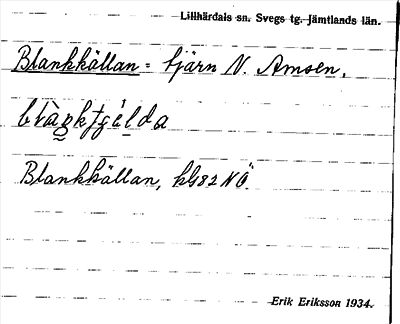 Lillhärdals sn. Svegs tg. Jämtlands län.
Blankkällan = tjärn N. Amsen.
Blankkällan, kG82 NÖ.
Erik Eriksson 1934.